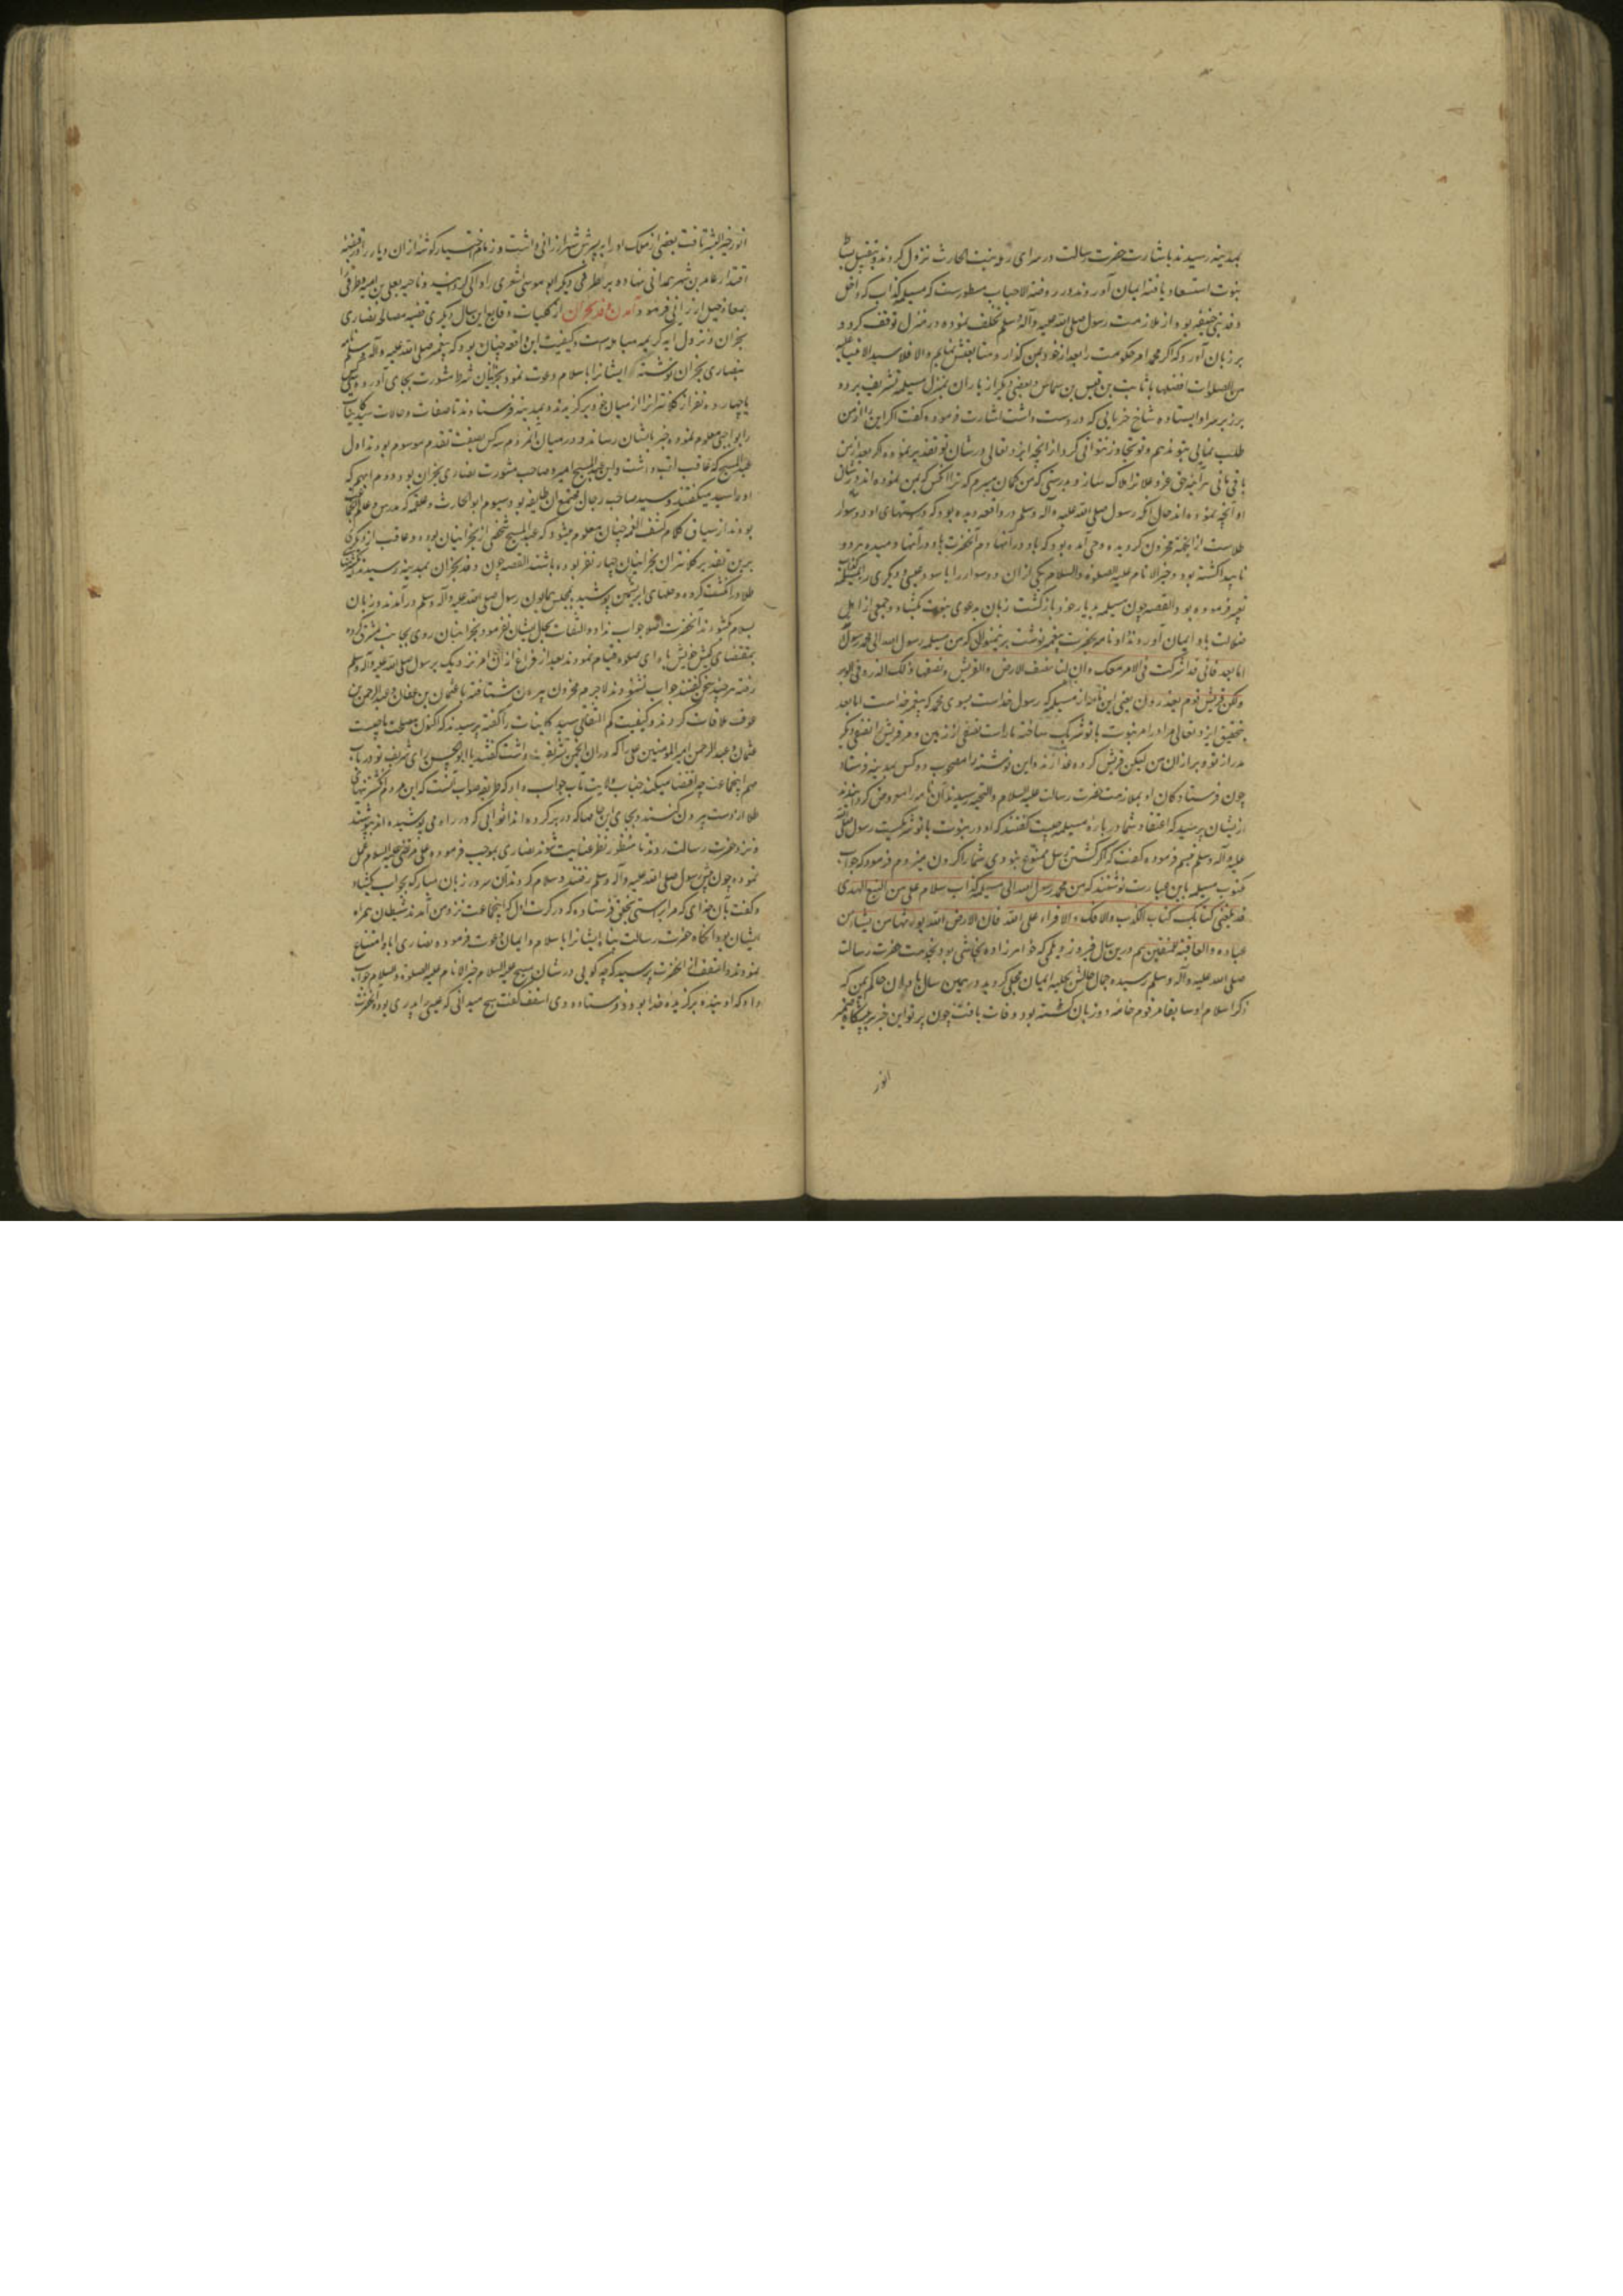 بمدینه رسیدند باشارت حضرت رسالت در سرای رمله بنت الحارث نزول کردند و بتقبیل
نبوت استسعاد یافته ایمان آوردند و در روضة الاحباب مسطورست که مسیلمه کذاب که داخل
وفد بنی حنیفه بود از ملازمت رسول صلی الله علیه وآله وسلم تخلف نموده در منزل توقف کرد و
بر زبان آورد که اگر محمد امر حکومت را بعد از خود بمن گذارد متابعتش نمایم والا فلا سید الانبیا علیه
من الصلوات افضلها با ثابت بن قیس بن شماس و بعضی دیگر از یاران بمنزل مسیلمه تشریف برده
بر زبر سر او ایستاده شاخ خرمایی که در دست داشت اشارت فرموده گفت اگر این را از من
طلب نمایی بتو ندهم و تو تجاوز نتوانی کرد از آنچه ایزد تعالی در شان تو تقدیر نموده و اگر بعد از من
باقی مانی هرآینه حق عز و علا ترا هلاک سازد و بدرستی که من گمان میبرم که تو آنکسی که بمن نموده اند در شان
او آنچه نموده اند حال آنکه رسول صلی الله علیه وآله وسلم در واقعه دیده بود که در دستهای او دو سوار
طلاست از آنجهة محزون گردیده وحی آمده بود که باد در آنها دم آنحضرت باد در آنها دمیده هر دو
ناپیدا گشته بود و خیر الانام علیه الصلوة والسلام یکی از آن دو سوار را باسود عنسی و دیگری را بمسیلمه
تعبیر فرموده بود القصه چون مسیلمه بدیار خود بازگشت زبان بدعوی نبوت بگشاد و جمعی از اهل
ضلالت باو ایمان آوردند و او نامه بحضرت پیغمبر نوشت برینمنوال که من مسیلمه رسول الله الی محمد رسول الله
اما بعد فانی قد اشرکت فی الامر معک و ان لنا نصف الارض و لقریش نصفها
ولکن قریش قوم یعتدون یعنی این نامه از مسیلمه که رسول خداست بسوی محمد که پیغمبر خداست اما بعد
بتحقیق ایزد تعالی مرا در امر نبوت با تو شریک ساخته ما راست نصفی از زمین و مر قریش را نصفی دیگر
این نوشته را مصحوب دو کس بمدینه فرستاد
چون فرستادگان او بملازمت حضرت رسالت علیه السلام والتحیه رسیدند آن نامه را معروض گردانیدند
از ایشان پرسید که اعتقاد شما درباره مسیلمه چیست گفتند که او در نبوت با تو شریکست رسول صلی الله
علیه وآله وسلم تبسم فرموده گفت که اگر کشتن رسل ممنوع نبودی شما را گردن میزدم و فرمود که جواب
مکتوب مسیلمه باین عبارت نوشتند که من محمد رسول الله الی مسیلمه کذاب سلام علی من اتبع الهدی
قد بلغنی کتابک کتاب الکذب والافک والافتراء علی الله فان الارض لله یورثها من یشاء من
عباده والعاقبة للمتقین هم درین سال فیروز دیلمی که خواهرزاده نجاشی بود بخدمت حضرت رسالت
صلی الله علیه وآله وسلم رسیده جمال حالش بحلیه ایمان محلی گردید و در همین سال باذان حاکم یمن که
ذکر اسلام او سابقا مرقوم خامه دو زبان گشته بود وفات یافت چون پرتو این خبر بر پیشگاه ضمیر
انور
انور خیر البشر تافت بعضی از ملک او را به پسرش شهر ارزانی داشت و زمام اختیار گوشه از آن دیار را در قبضه
اقتدار عامر بن شهر همدانی نهاده بر طرفی دیگر ابو موسی اشعری را والی گردانید و ناحیه بیعلی بن امیه و طرفی را
بمعاذ جبل ارزانی فرمود آمدن وفد نجران از کلیات وقایع این سال دیگری قضیه مصالحه نصاری
نجران و نزول آیه کریمه مباهله است و کیفیت این واقعه چنان بود که پیغمبر صلی الله علیه وآله وسلم نامه
بنصاری نجران نوشته ایشانرا باسلام دعوت نمود نجرانیان شرط مشورت بجای آورده
یا چهارده نفر از کلانترانرا از میان خود برگزیدند و بمدینه فرستادند تا صفات و حالات سید کاینات
را بواجبی معلوم نموده خبر بایشان رسانند و در میان آنمردم سه کس بصفت تقدم موسوم بودند اول
عبد المسیح که عاقب لقب داشت و این عبد المسیح امیر و صاحب مشورت نصاری نجران بود دوم ایهم که
او را سید میگفتند و سید صاحب رجال و مجمع آن طایفه بود و سیوم ابو الحارث و علقمه که مدرس و عالم
بودند از سیاق کلام کشف الغمه چنان معلوم میشود که عبد المسیح شخصی از نجرانیان بوده و عاقب از دیگری
برین تقدیر کلانتران نجرانیان چهار نفر بوده باشند القصه چون وفد نجران بمدینه رسیدند
طلا در انگشت کرده و حلهای ابریشمین پوشیده بمجلس همایون رسول صلی الله علیه وآله وسلم درآمدند و زبان
بسلام گشودند آنحضرت اصلا جواب نداده التفات بحال ایشان نفرمود نجرانیان روی بجانب مشرق کرده
بمقتضای کیش خویش بادای صلوة قیام نمودند بعد از فراغ از آن امر نزدیک برسول صلی الله علیه وآله وسلم
رفته هر چند سخن گفتند جواب نشنودند لاجرم محزون بیرون شتافته با عثمان بن عفان و عبد الرحمن بن
عوف ملاقات کردند و کیفیت کم التفاتی سید کاینات را گفته پرسیدند که اکنون مصلحت ما چیست
عثمان و عبد الرحمن امیر المؤمنین علی را که در آن انجمن تشریف داشت گفتند یا ابو الحسن رای شریف تو در باب
مهم اینجماعت چه اقتضا میکند جناب ولایت مآب جواب داد که طریقه صواب آنست که این مردم انگشتریهای
طلا از دست بیرون کنند و بجای این حلها که در بر کرده اند اثوابی که در راه می پوشیده اند بپوشند
و نزد حضرت رسالت روند تا منظور نظر عنایت شوند نصاری بموجب فرموده علی مرتضی علیه السلام عمل
نموده چون پیش رسول صلی الله علیه وآله وسلم رفتند و سلام کردند آن سرور زبان مبارک بجواب بگشاد
و گفت بآن خدای که مرا براستی بخلق فرستاده که در کرت اول که اینجماعت نزد من آمدند شیطان همراه
ایشان بود آنگاه حضرت رسالت پناه ایشانرا باسلام و ایمان دعوت فرموده نصاری ابا و امتناع
نمودند و اسقف از آنحضرت پرسید که چه گویی در شان مسیح علیه السلام خیر الانام علیه الصلوة والسلام جواب
داد که او بنده برگزیده خدا بود و فرستاده وی اسقف گفت هیچ میدانی که عیسی را پدری بود آنحضرت